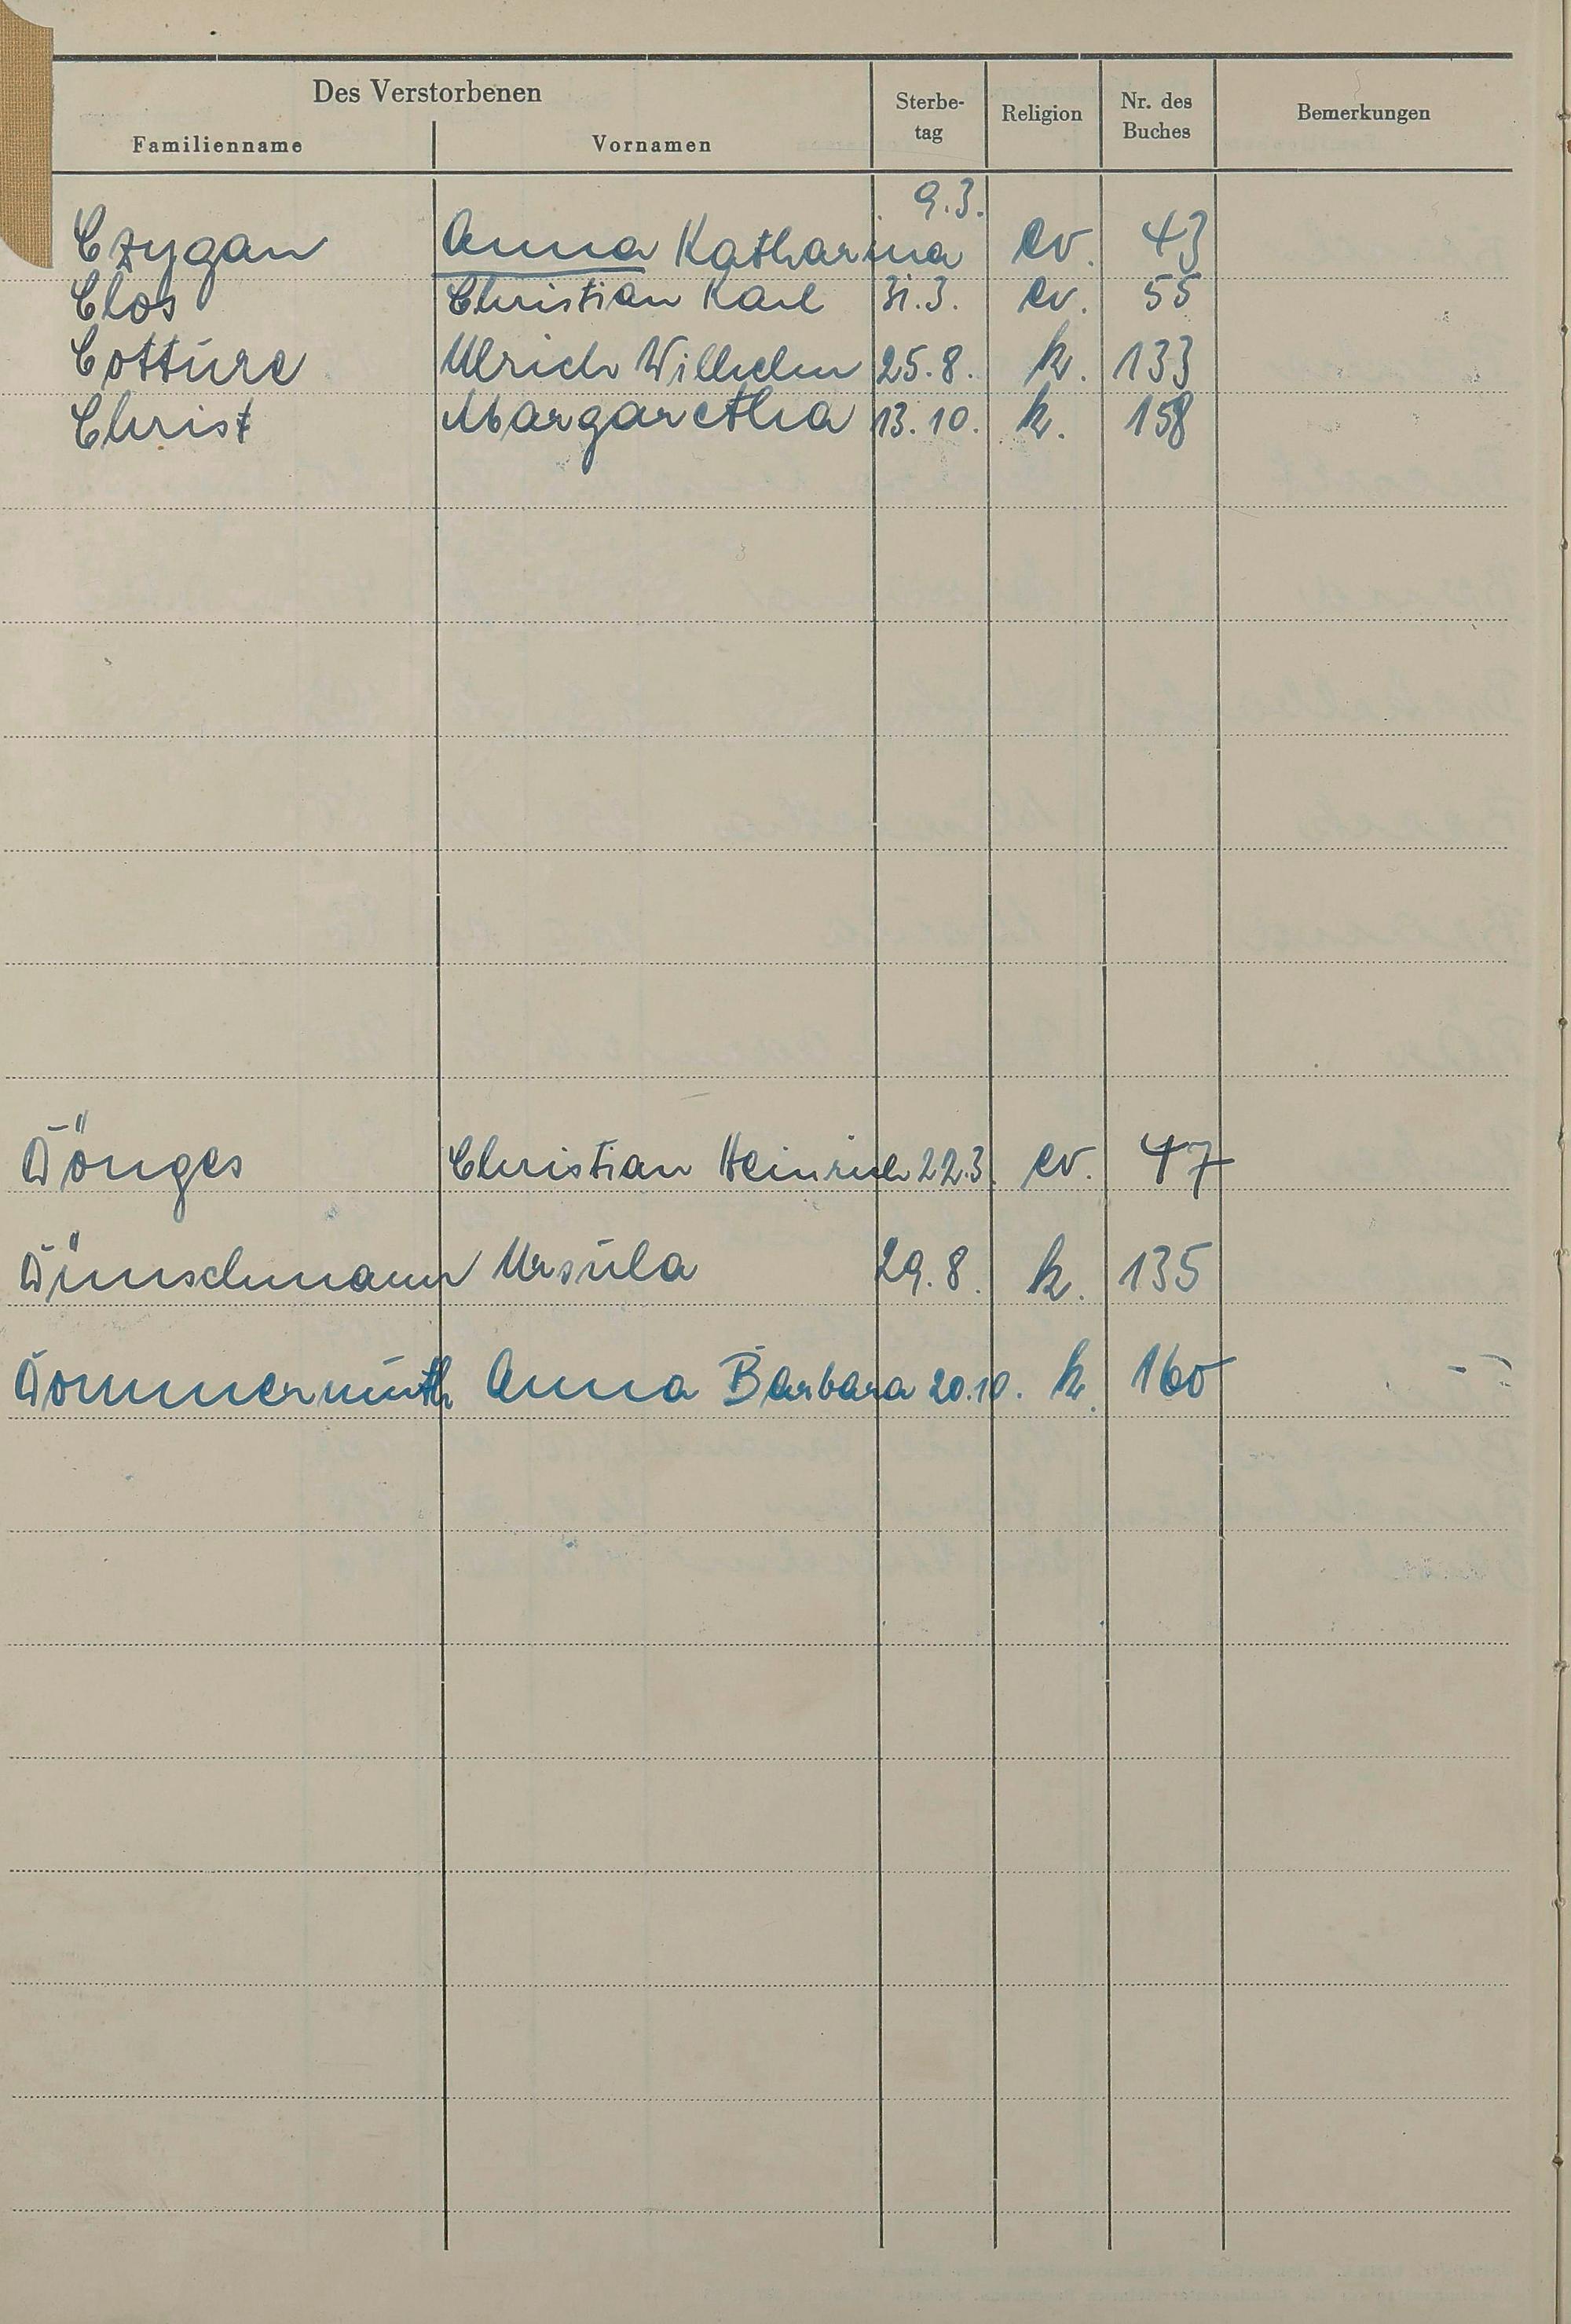 Des Verstorbenen
Familienname Vornamen Sterbe-tag Religion Nr. des Buches Bemerkungen
Czygan Anna Katharina 9.3. ev. 43
Clos Christian Karl 31.3. ev. 55
Cotture Ulrich Wilhelm 25.8. k. 133
Christ Margaretha 13.10. k. 158
Dönges Christian Heinrich 22.3. ev. 47
Dünschmann Ursula 29.8. k. 135
Dommermuth Anna Barbara 20.10. k. 160